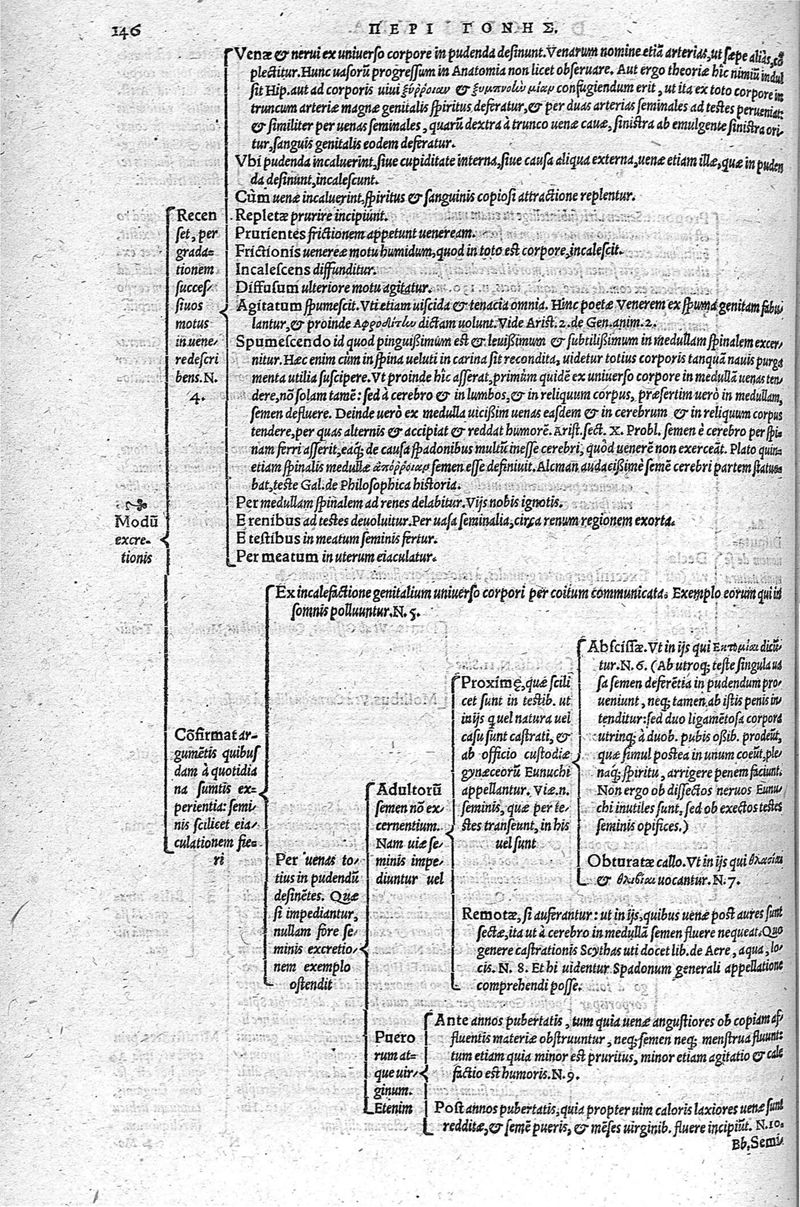 146
ΠΕΡΙ ΓΟΝΗΣ.
Venæ & nerui ex uniuerso corpore in pudenda desinunt. Venarum nomine etiã arterias, ut sæpe aliàs, cõ
plectitur. Hunc uasorũ progressum in Anatomia non licet obseruare. Aut ergo theoriæ hîc nimiũ indul
sit Hip. aut ad corporis uiui ξύῤῥοιαν & ξυμπνοὼν μίαν confugiendum erit, ut ita ex toto corpore in
truncum arteriæ magnæ genitalis spiritus deferatur, & per duas arterias seminales ad testes perueniat:
& similiter per uenas seminales, quarũ dextra à trunco uenæ cauæ, sinistra ab emulgente sinistra ori
tur, sanguis genitalis eodem deferatur.
Vbi pudenda incaluerint, siue cupiditate interna, siue causa aliqua externa, uenæ etiam illæ, quæ in puden
da desinunt, incalescunt.
Cùm uenæ incaluerint, spiritus & sanguinis copiosi attractione replentur.
Repletæ prurire incipiunt.
Prurientes frictionem appetunt ueneream.
Frictionis uenereæ motu humidum, quod in toto est corpore, incalescit.
Incalescens diffunditur.
Diffusum ulteriore motu agitatur.
Agitatum spumescit. Vti etiam uiscida & tenacia omnia. Hinc poetæ Venerem ex spuma genitam fabu
lantur, & proinde Αφροδίτων dictam uolunt. Vide Arist. 2. de Gen. anim. 2.
Spumescendo id quod pinguißimùm est & leuißimum & subtilißimum in medullam spinalem excer-
nitur. Hæc enim cùm in spina ueluti in carina sit recondita, uidetur totius corporis tanquã nauis purga
menta utilia suscipere. Vt proinde hic asserat, primùm quidẽ ex uniuerso corpore in medullã uenas ten/
dere, nõ solam tamẽ: sed à cerebro & in lumbos, & in reliquum corpus, præsertim uerò in medullam,
semen defluere. Deinde uerò ex medulla uicißim uenas easdem & in cerebrum & in reliquum corpus
tendere, per quas alternis & accipiat & reddat humorẽ. Arist. sect. X. Probl. semen è cerebro per spi-
nam ferri asserit, eaq; de causa spadonibus multũ inesse cerebri, quòd uenerẽ non exerceãt. Plato quin
etiam spinalis medullæ ἀπόῤῥοιαν semen esse definiuit. Alcman audacißimè semẽ cerebri partem statue
bat, teste Gal. de Philosophica historia.
Per medullam spinalem ad renes delabitur. Vijs nobis ignotis.
E renibus ad testes deuoluitur. Per uasa seminalia, circa renum regionem exorta.
E testibus in meatum seminis fertur.
Per meatum in uterum eiaculatur.
Recen
set, per
grada=
tionem
succes/
siuos
motus
in uene/
re descri
bens. N.
4.
Modũ
excre-
tionis
Cõfirmat ar-
gumẽtis quibus
dam à quotidia
na sumtis ex/
perientia: semi/
nis scilicet eia/
culationem fie/
ri
Ex incalefactione genitalium uniuerso corpori per coitum communicata. Exemplo eorum qui in
somnis polluuntur. N. 5.
Per uenas to/
tius in pudendũ
desinẽtes. Quæ
si impediantur,
nullam fore se/
minis excretio/
nem exemplo
ostendit
Adultorũ
semen nõ ex/
cernentium.
Nam uiæ se/
minis impe/
diuntur uel
Proximę, quæ scili
cet sunt in testib. ut
in ijs quel natura uel
casu sunt castrati, &
ab officio custodiæ
gynæceorũ Eunuchi
appellantur. Viæ. n.
seminis, quæ per te/
stes transeunt, in his
uel sunt
Abscissæ. Vt in ijs qui Εκτομίαι dicũ/
tur. N. 6. (Ab utroq; teste singula ua
sa semen deferẽtia in pudendum pro/
ueniunt, neq; tamen ab istis penis in/
tenditur: sed duo ligamẽtosa corpora
utrinq; à duob. pubis oßib. prodeũt,
quæ simul postea in unum coeũt, ple/
naq; spiritu, arrigere penem faciunt.
Non ergo ob dissectos neruos Eunu/
chi inutiles sunt, sed ob exectos testes
seminis opifices.)
Obturatæ callo. Vt in ijs qui θλασίαι
& θλιβίαι uocantur. N. 7.
Remotæ, si auferantur: ut in ijs, quibus uenæ post aures sunt
sectæ, ita ut à cerebro in medullã semen fluere nequeat. Quo
genere castrationis Scythas uti docet lib. de Aere, aqua, lo/
cis. N. 8. Et hi uidentur Spadonum generali appellatione
comprehendi posse.
Puero
rum at=
que uir/
ginum.
Etenim
Ante annos pubertatis, tum quia uenæ angustiores ob copiam af/
fluentis materiæ obstruuntur, neq; semen neq; menstrua fluunt:
tum etiam quia minor est pruritus, minor etiam agitatio & cale
factio est humoris. N. 9.
Post annos pubertatis, quia propter uim caloris laxiores uenæ sunt
redditæ, & semẽ pueris, & mẽses uirginib. fluere incipiũt. N. 10.
Bb. Semi/